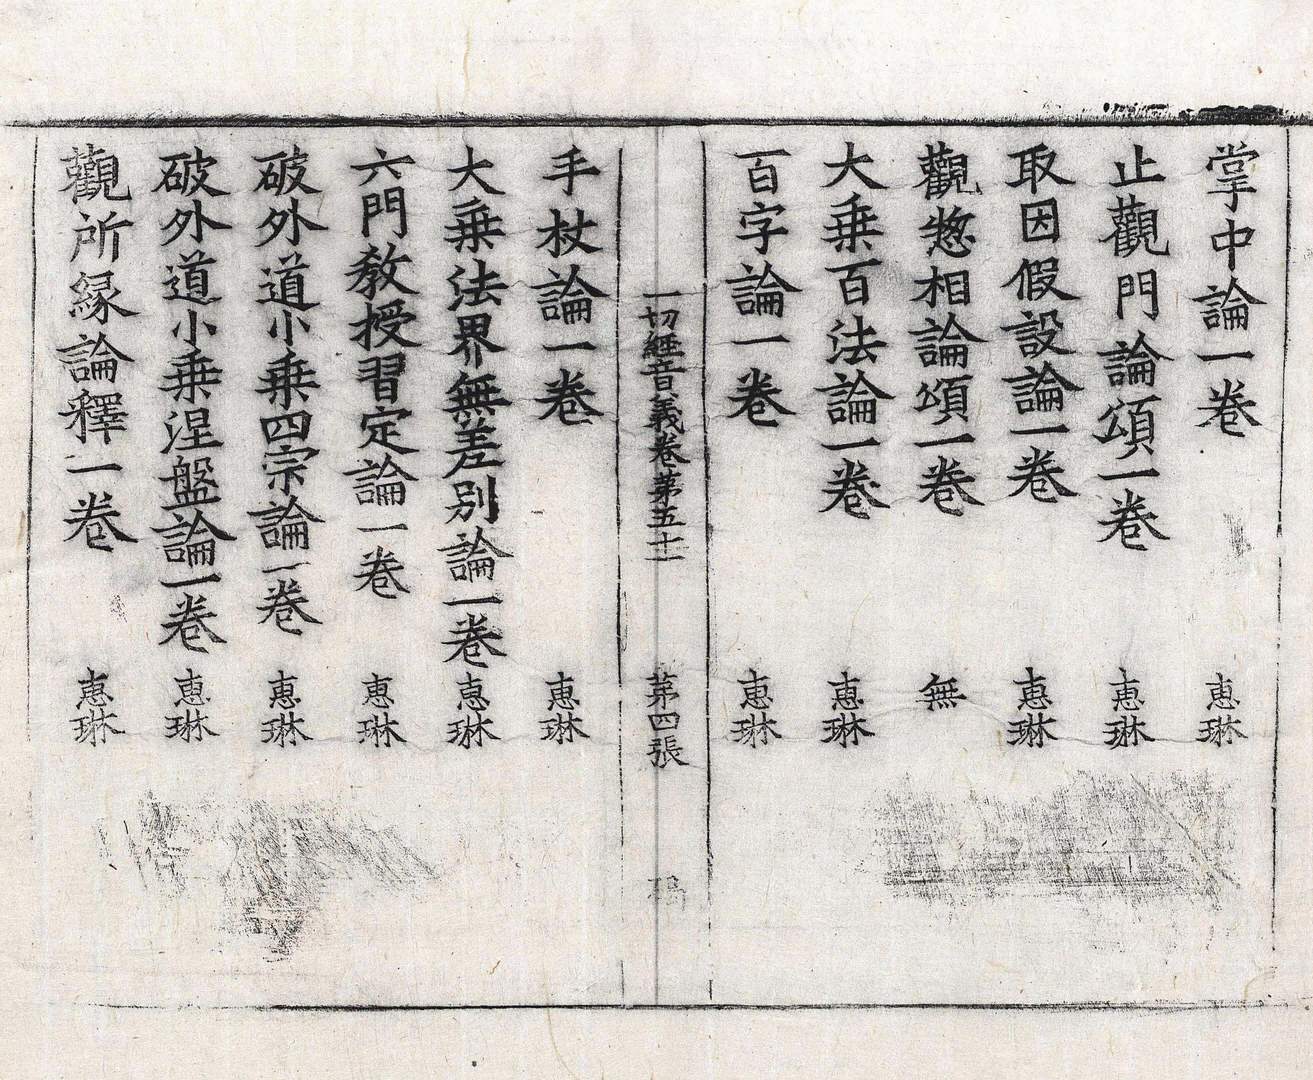 掌中論一卷 惠琳
止觀門論頌一卷 惠琳
取因假設論一卷 惠琳
觀惣相論頌一卷 無
大乗百法論一卷 惠琳
百字論一卷 惠琳
一切經音義卷第五十一 第四張
手杖論一卷 惠琳
大乗法界無差別論一卷 惠琳
六門教授習定論一卷 惠琳
破外道小乗四宗論一卷 惠琳
破外道小乗涅盤論一卷 惠琳
觀所縁論釋一卷 惠琳